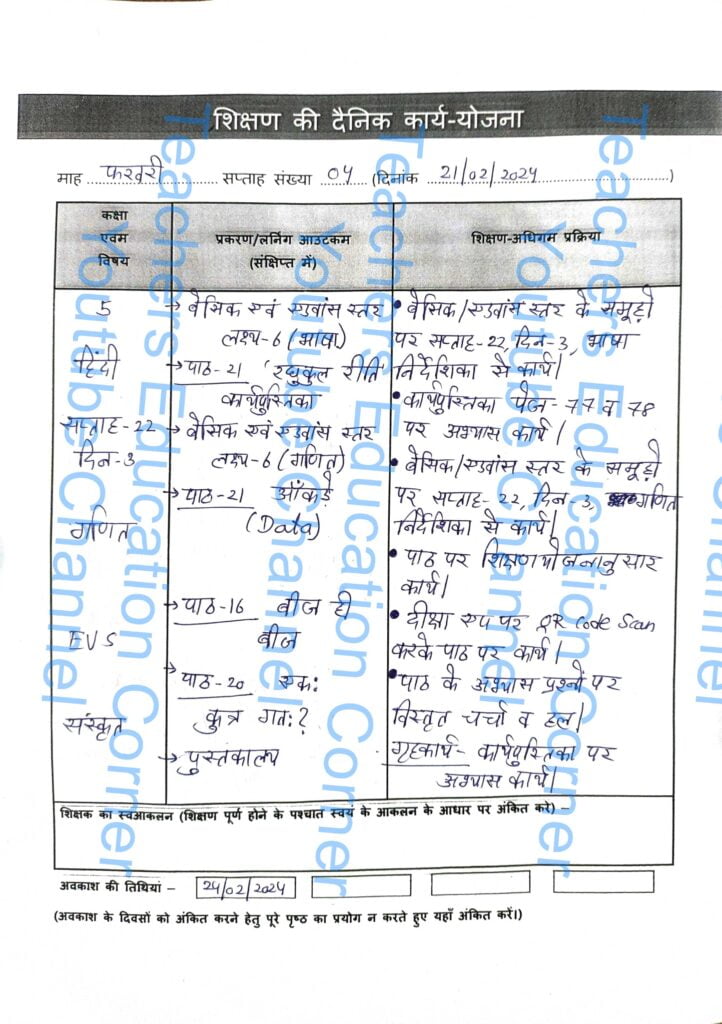 शिक्षण की दैनिक कार्य-योजना
माह फरवरी सप्ताह संख्या 04 (दिनांक 21/02/2024)
कक्षा एवम विषय
प्रकरण/लर्निंग आउटकम (संक्षिप्त में)
शिक्षण-अधिगम प्रक्रिया
5
हिंदी
सप्ताह-22
दिन-3
गणित
EVS
संस्कृत
→ बेसिक एवं एडवांस स्तर
लक्ष्य-6 (भाषा)
→ पाठ-21 'रघुकुल रीति'
कार्यपुस्तिका
→ बेसिक एवं एडवांस स्तर
लक्ष्य-6 (गणित)
→ पाठ-21 आँकड़े
(Data)
→ पाठ-16 बीज ही
बीज
→ पाठ-20 एक:
कुत्र गत:?
→ पुस्तकालय
• बेसिक/एडवांस स्तर के समूहों
पर सप्ताह-22, दिन-3, भाषा
निर्देशिका से कार्य।
• कार्यपुस्तिका पेज-77 व 78
पर अभ्यास कार्य।
• बेसिक/एडवांस स्तर के समूहों
पर सप्ताह-22, दिन-3, गणित
निर्देशिका से कार्य।
• पाठ पर शिक्षण योजनानुसार
कार्य।
• दीक्षा एप पर QR Code Scan
करके पाठ पर कार्य।
• पाठ के अभ्यास प्रश्नों पर
विस्तृत चर्चा व हल।
गृहकार्य- कार्यपुस्तिका पर
अभ्यास कार्य।
शिक्षक का स्वआकलन (शिक्षण पूर्ण होने के पश्चात स्वयं के आकलन के आधार पर अंकित करे) –
अवकाश की तिथियां – 24/02/2024
(अवकाश के दिवसों को अंकित करने हेतु पूरे पृष्ठ का प्रयोग न करते हुए यहाँ अंकित करें।)
Teachers Education Corner
Youtube Channel
Teachers Education Corner
Youtube Channel
Teachers Education Corner
Youtube Channel